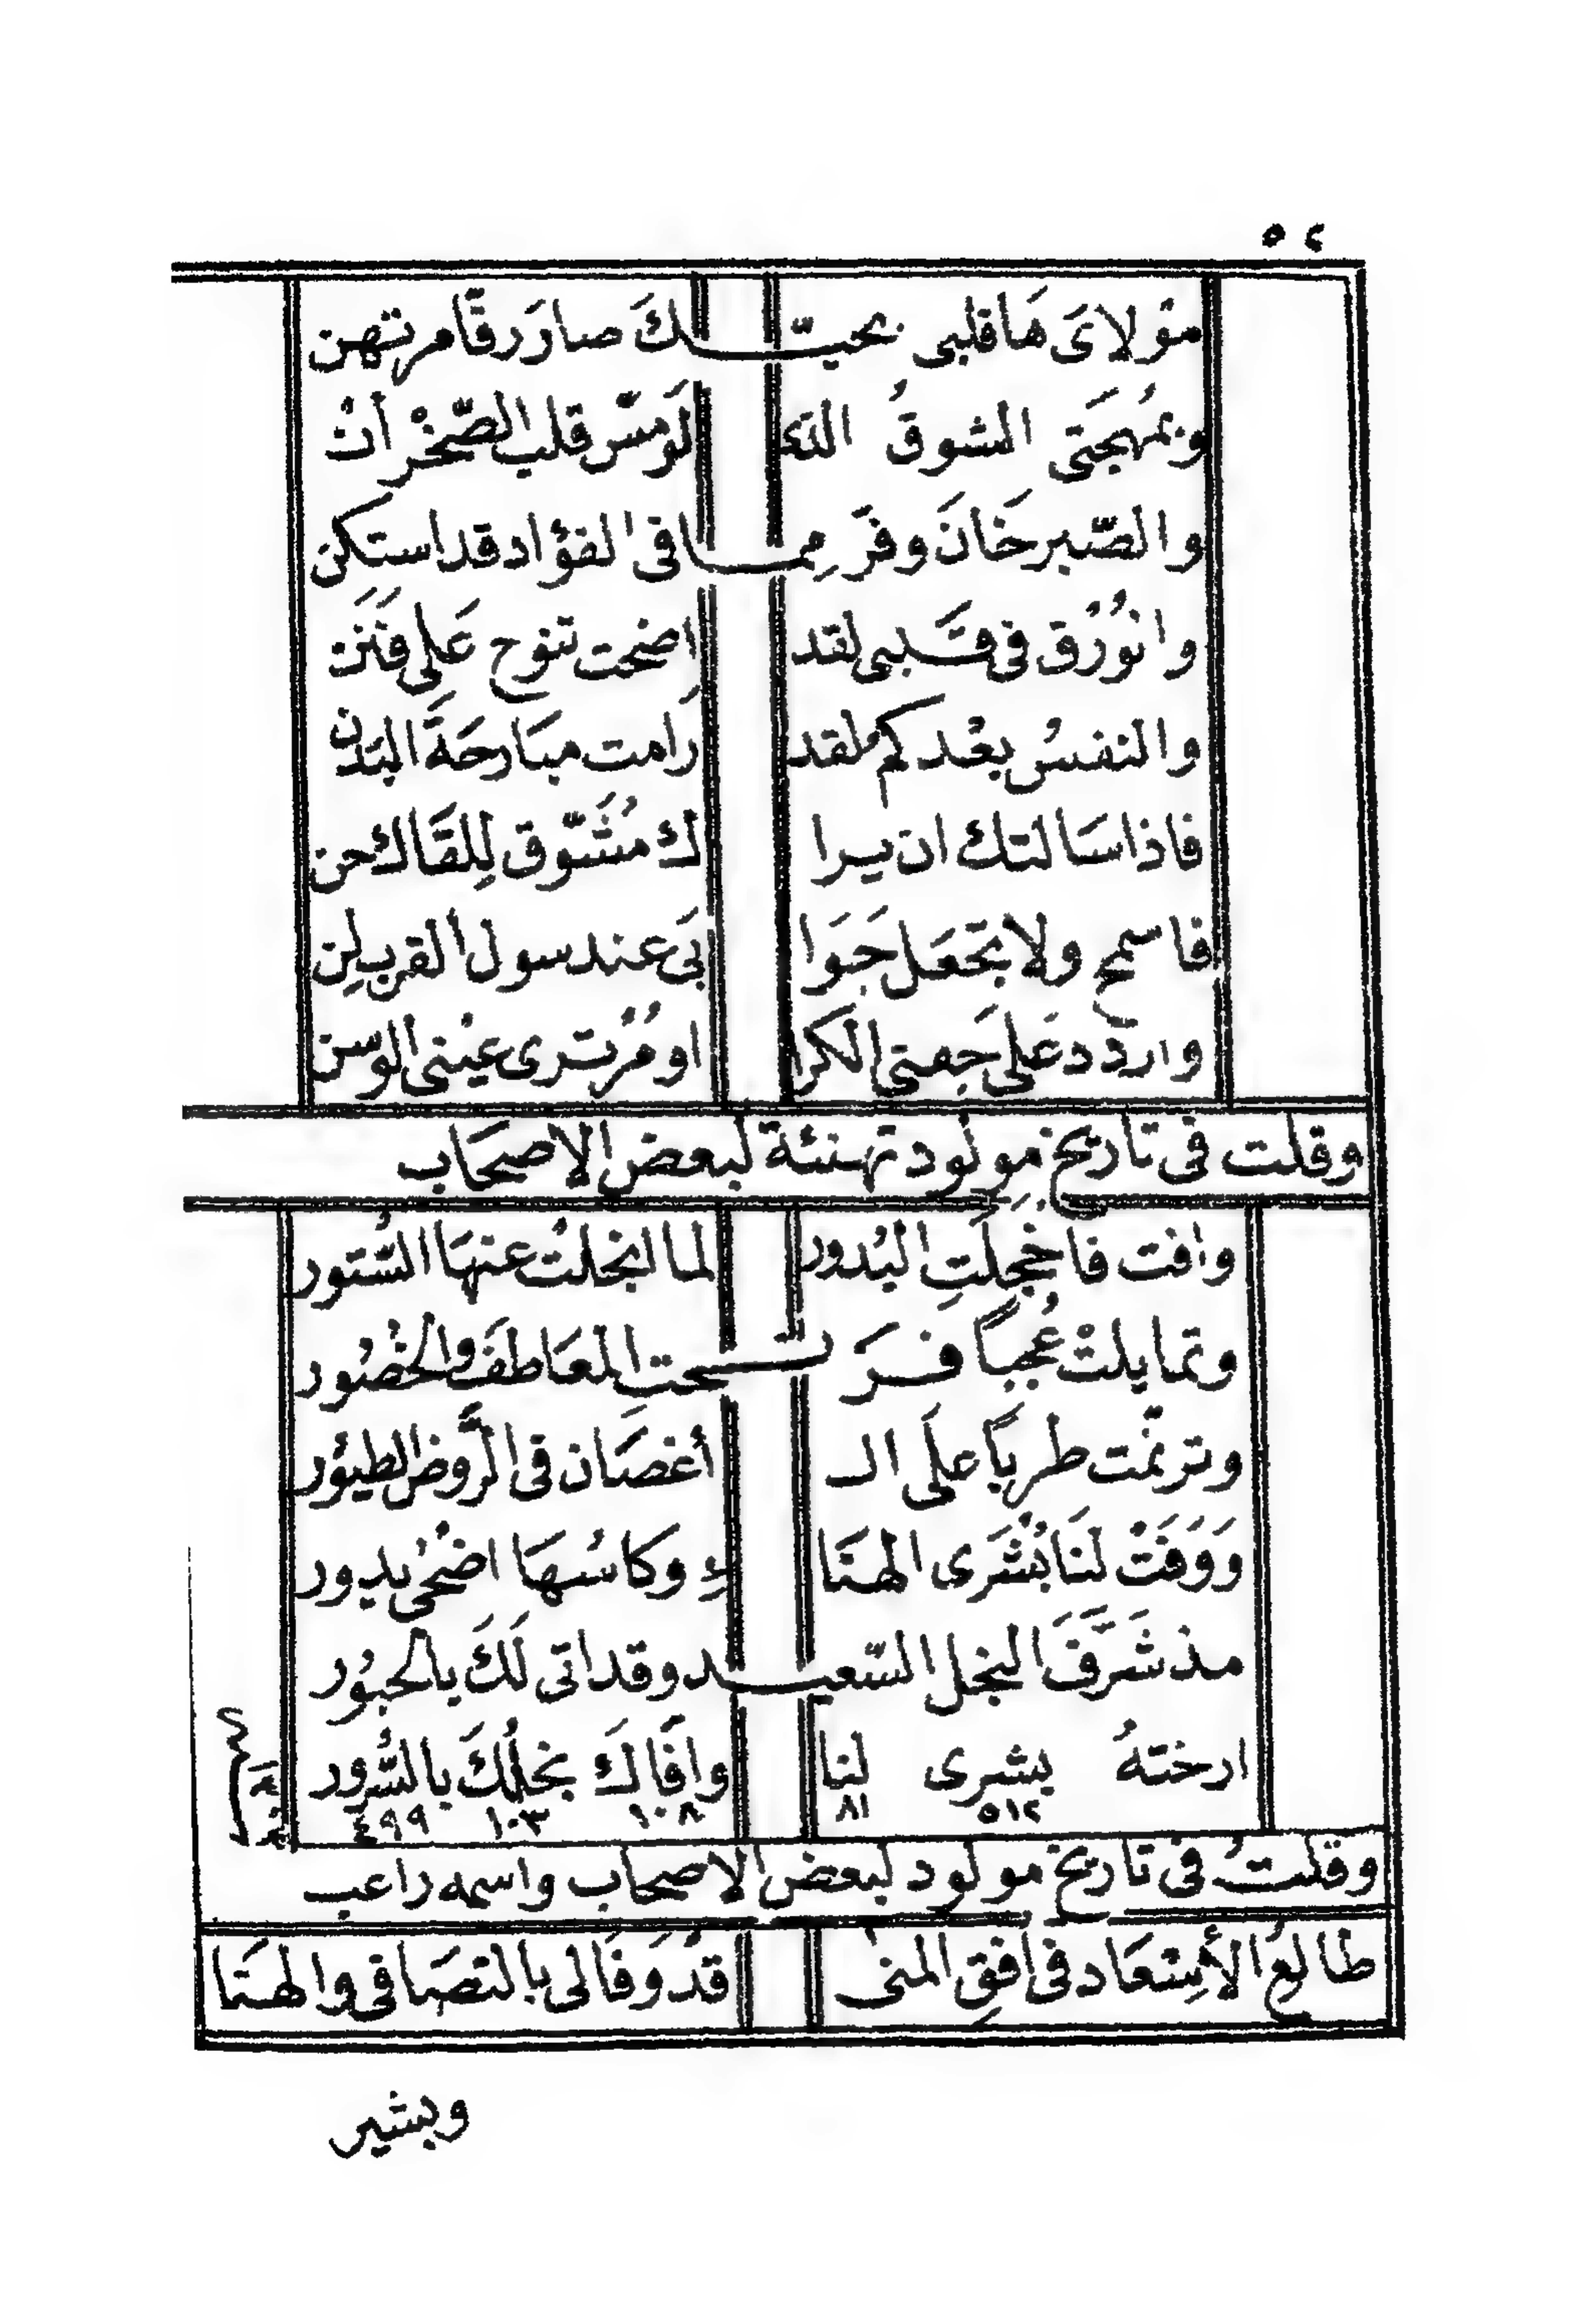 ٥٢
مَوْلايَ هَا قلبى بحبّـــكَ صارَ رقّاً مرتهن
وبمُهجَتى الشوقُ الذى لَو مسّ قلب الصّخْر أنْ
والصّبر خَانَ وفرَّ مِمــا فى الفؤاد قد استكن
وا نُورُق فى قَــلبى لقد اضحت تنوح عَلى فَنَن
والنفسُ بعْدكم لقد رَامت مبَارحَةَ البَدن
فاذا سَالتك ان يرا ك مُشَّوق لِلقَاك حن
فاسمح ولا تجعَل جَوَا بَى عند سول القرب لن
واردد عَلى جَفنى الكرا او مُرْ ترى عيْنى الوسن
وقلت فى تاريخ مولود تهنئة لبعض الاصحَاب
وافت فاخجلَتِ البُدور لما انجلتْ عنهَا السُّتور
وتمايلتْ عُجباً فرَ نــحتِ المعَاطفَ والخصُور
وترنّمت طربًا علَى الـ أغصَان فى الرَّوض الطيوُر
وَوَفَتْ لنَا بُشْرَى الهنَا ءِ وكاسُهَا اضْحىْ يدور
مذ شَرَّفَ النجل السّعيــد وقد اتى لَكَ بالحبوُر
ارختهُ بشرى لنا وافَاكَ نجلُكَ بالسُّرور
٥١٢ ٨١ ١٠٨ ١٠٣ ٤٩٩
وقلتُ فى تاريخ مولود لبعض الاصحاب واسمه راغب
طالعُ الأسْعَاد فى افق المنىٰ قدْ وَفَا لى بالتصَافى والهنَا
وبشير